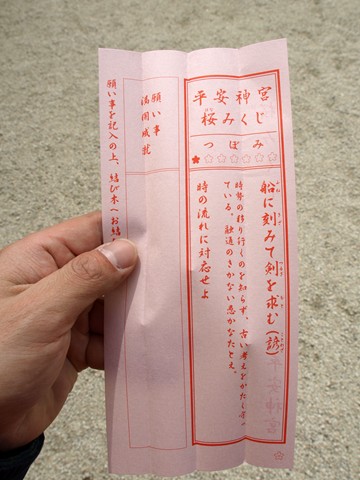 平安神宮
桜みくじ
つぼみ
船に刻みて剣を求む(諺)
時勢の移り行くのを知らず、古い考えをかたく守っ
ている。融通のきかない愚かなたとえ。
時の流れに対応せよ
願い事
満開成就
願い事を記入の上、結び木へお結